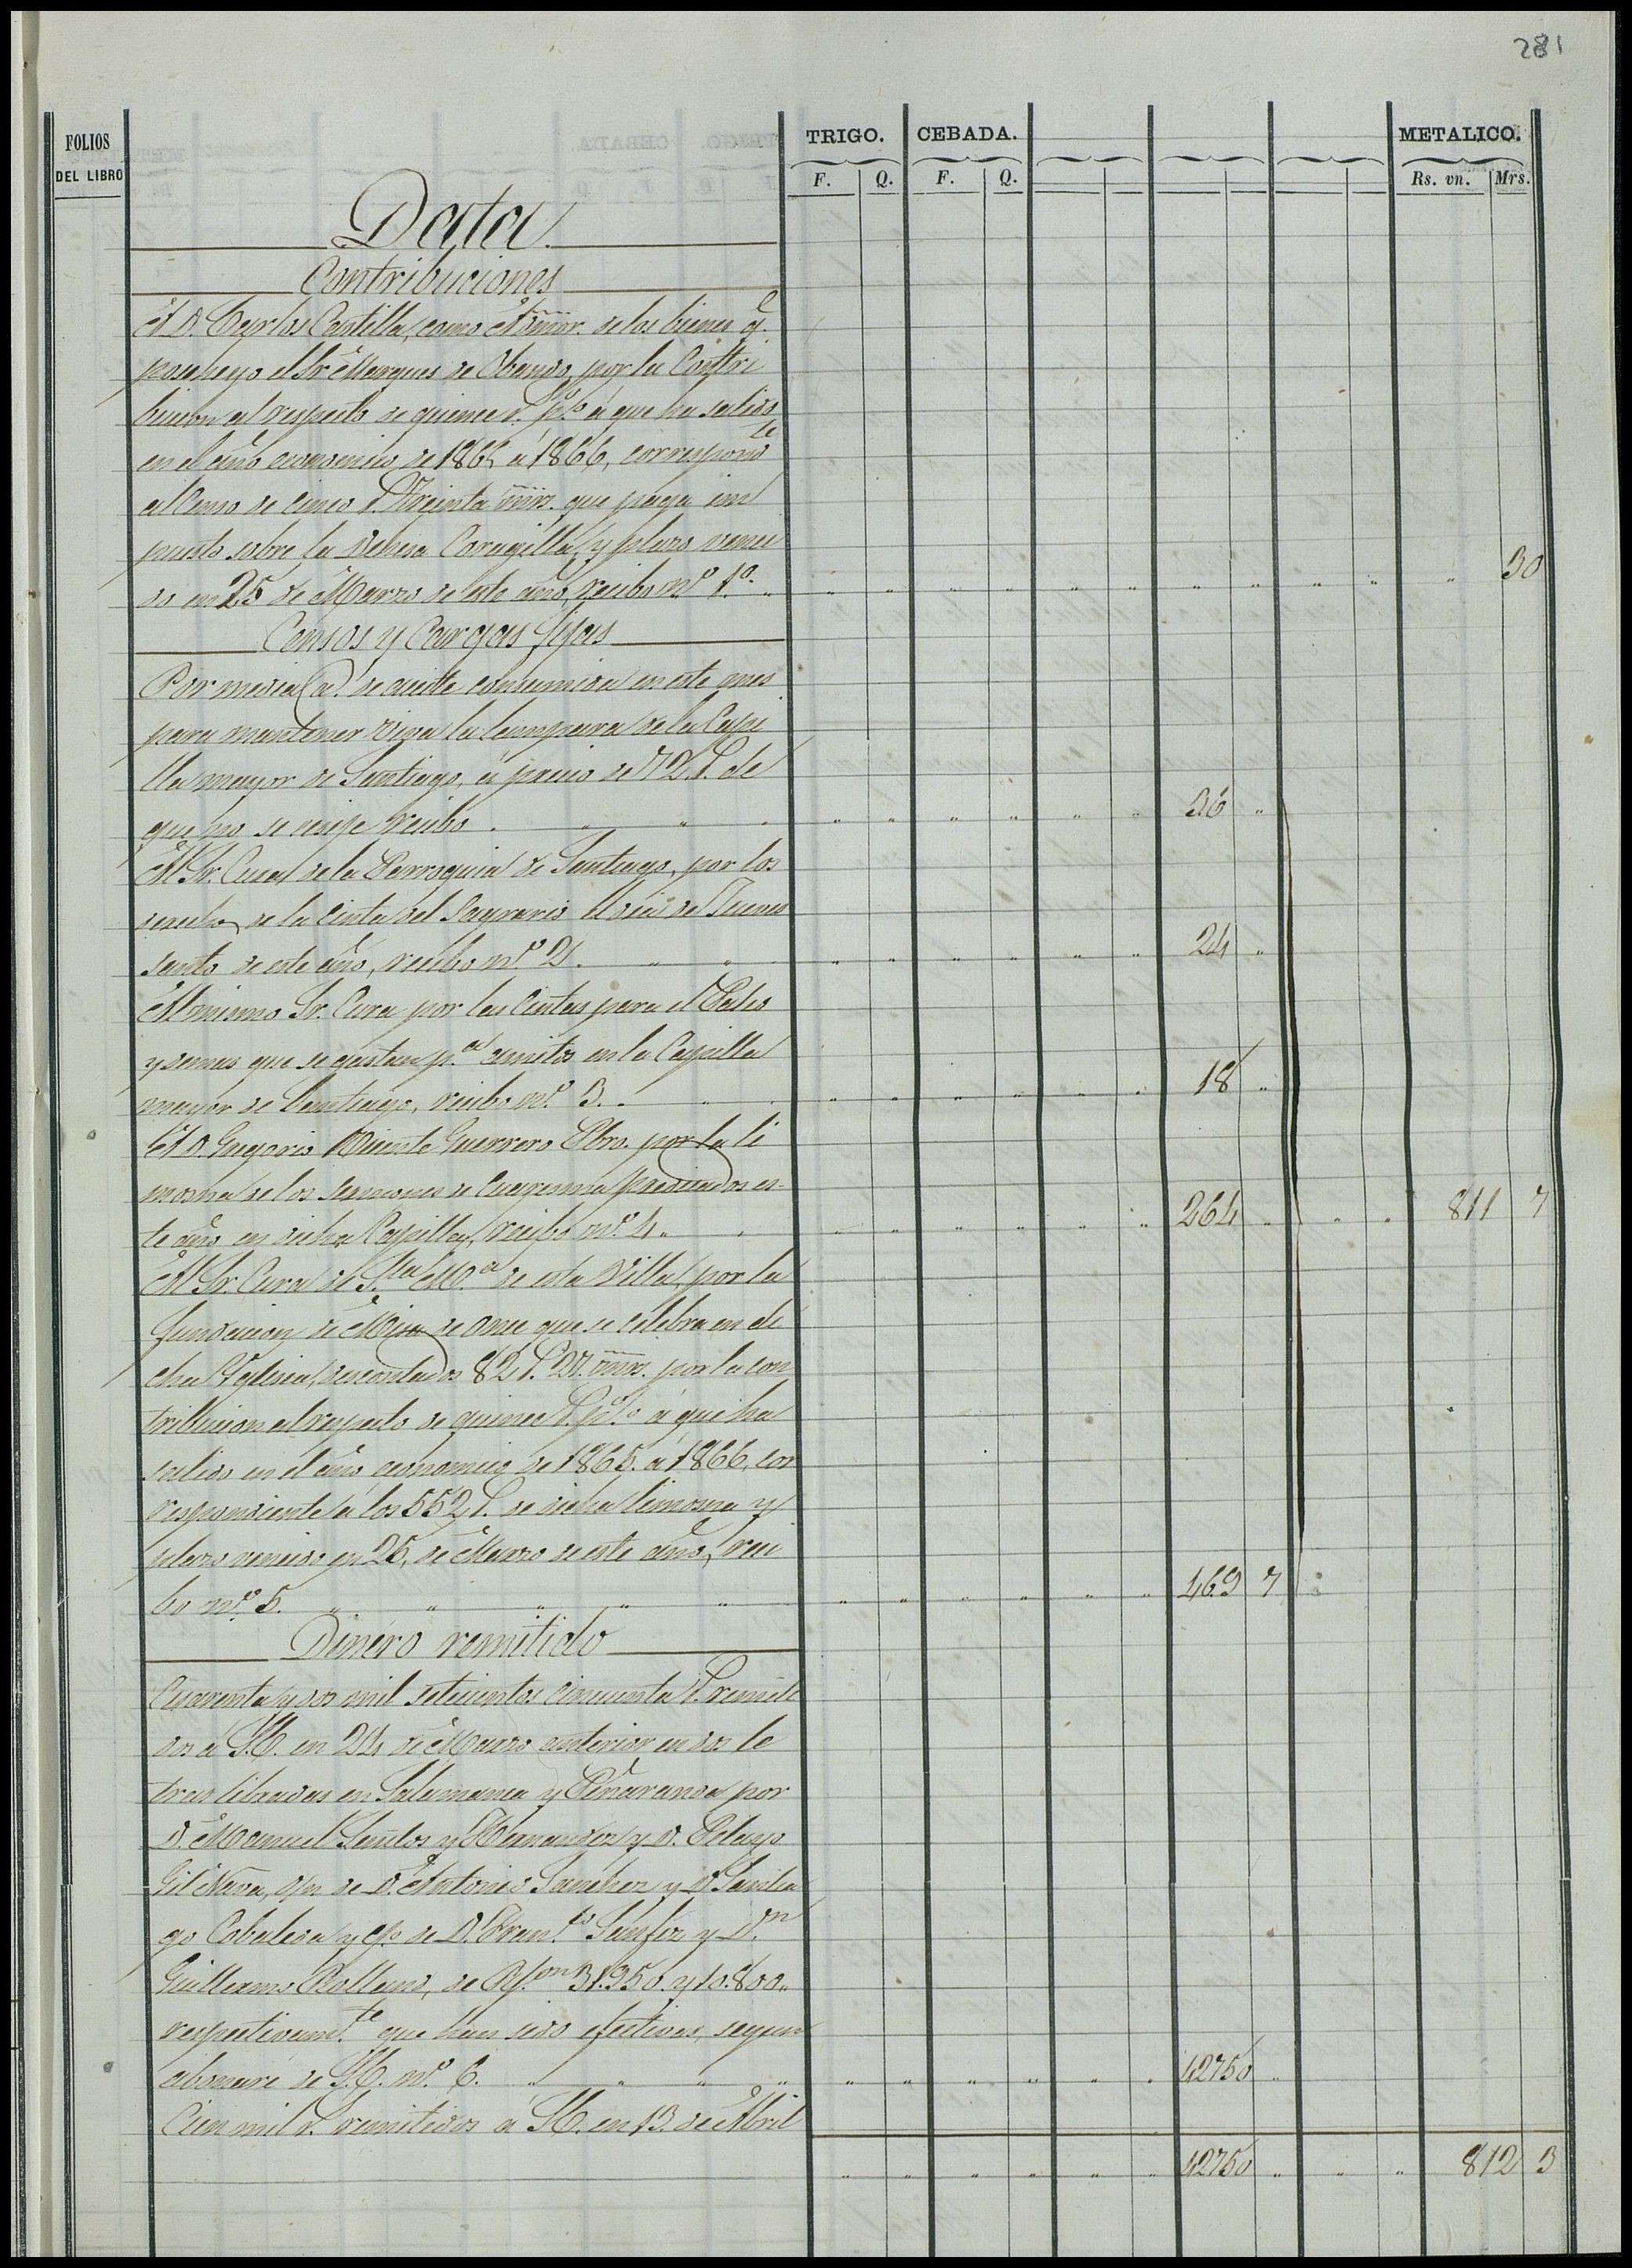 281
FOLIOS DEL LIBRO
TRIGO. CEBADA. METALICO.
F. Q. F. Q. Rs. vn. Mrs.
Data
Contribuciones
A D. Carlos Cantilla, como Admor. de los bienes q.e
poseheyo el Sr. Marques de Obando, por la Contri
bucion al respecto de quince r.s p% á que ha salido
en el año economico de 1865 á 1866, correspond.te
al Censo de cinco r.s treinta mrs. que paga im
puesto sobre la dehesa Coragilla, y plazo venci
do en 25 de Marzo de este año, recibo n.º 1.º " " " " " " " " " " " 30
Censos y Cargas fijas
Por media @ de aceite consumida en este mes
para mantener viva la lampara de la Capi
lla mayor de Santiago, á precio de 72 r.s de
que no se exije recibo. " " " " " " " " " 36 "
Al Sr. Cura de la Parroquia de Santiago, por los
derechos de la cinta del Sagrario el dia de Jueves
santo de este año, recibo n.º 2. " " " " " " " " 24 "
Al mismo Sr. Cura por las Cintas para el Palio
y demas que se gastan p.a amitos en la Capilla
mayor de Santiago, recibo n.º 3. " " " " " " " " 18 "
A D. Gregorio Vicente Guerrero Pbro. por la li
mosna de los Sermones de Cuaresma predicados es-
te año en dicha Capilla, recibo n.º 4. " " " " " " " 264 " " " 811 7
Al Sr. Cura de S.ta M.a de esta Villa, por la
fundacion de Misa de once que se celebra en di
cha Yglesia, descontados 82 r.s 27 mrs. por la con
tribucion al respecto de quince r.s p% á que ha
salido en el año economico de 1865. á 1866, cor
respondiente á los 552 r.s de dicha limosna y
plazo vencido en 25, de Marzo de este año, reci
bo n.º 5. " " " " " " " " " " " 469 7
Dinero remitido
Cuarenta y dos mil setecientos cincuenta r.s remiti
dos á S.E. en 24 de Marzo anterior en dos le
tras libradas en Salamanca y Peñaranda por
D. Manuel Santos y Hernandez y D. Pelayo
Gil Nieva, o/n de D. Antonio Sanchez y D. Santia
go Cobaleda y c/o de D. Fran.co Sanfiz y D.n
Guillermo Rolland, de R.s von 31.950. y 10.800 "
respectivam.te que han sido efectivas, segun
abonaré de S.E. n.º 6. " " " " " " " " " " 42750 "
Cien mil r.s remitidos á S.E. en 13. de Abril
" " " " " " 42750 " " " 812 3